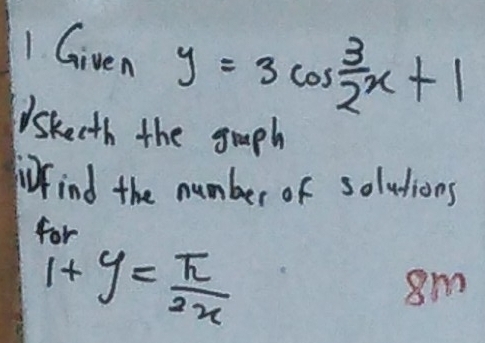 1 Given y = 3 cos 3/2 x + 1
i) Skecth the graph
ii) find the number of solutions
for
1 + y = π/2x
8m